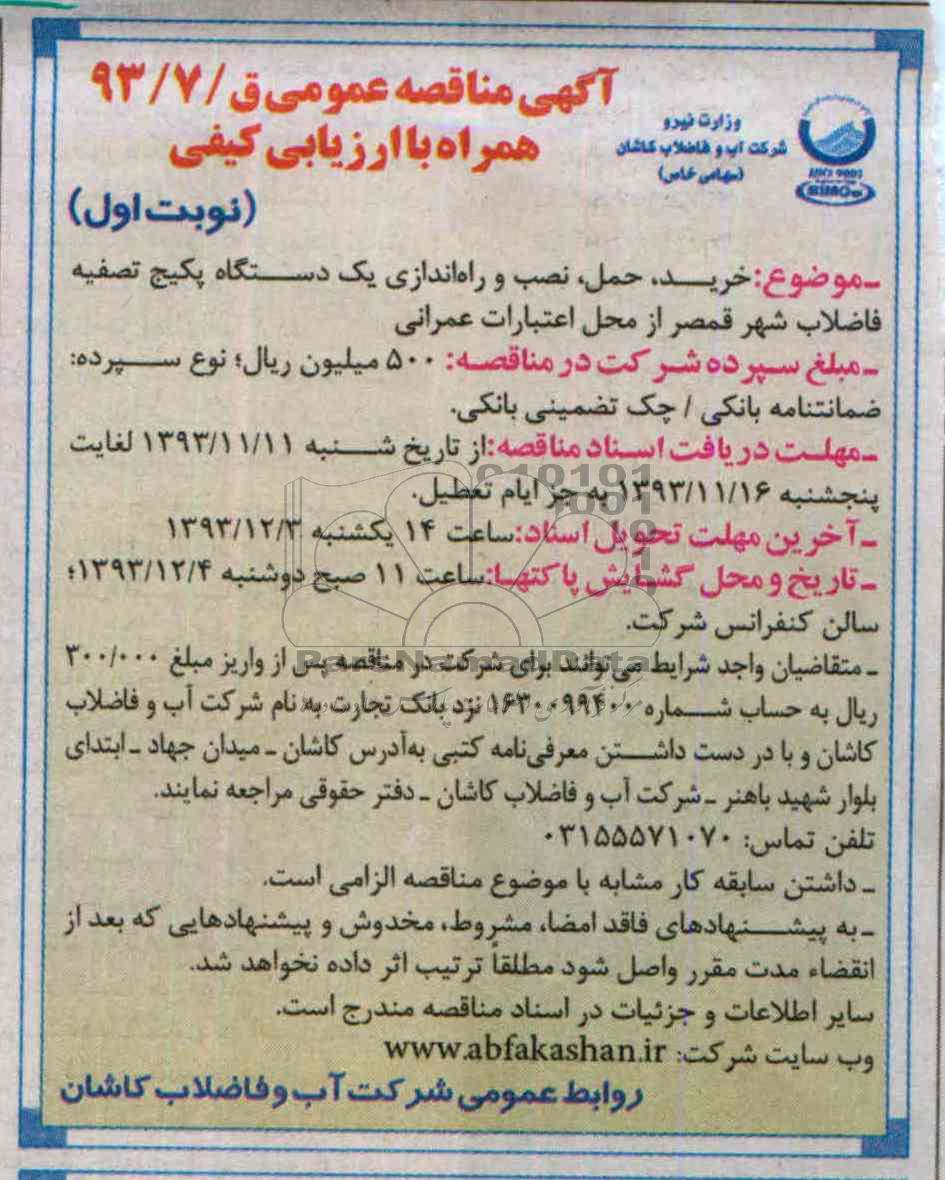 آگهی مناقصه عمومی ق/۹۳/۷
همراه با ارزیابی کیفی
(نوبت اول)
وزارت نیرو
شرکت آب و فاضلاب کاشان
(سهامی خاص)
ـ موضوع: خریـــد، حمل، نصب و راه‌اندازی یک دستگاه پکیج تصفیه
فاضلاب شهر قمصر از محل اعتبارات عمرانی
ـ مبلغ سپرده شرکت در مناقصه: ۵۰۰ میلیون ریال؛ نوع سپرده:
ضمانتنامه بانکی / چک تضمینی بانکی.
ـ مهلت دریافت اسناد مناقصه: از تاریخ شنبه ۱۳۹۳/۱۱/۱۱ لغایت
پنجشنبه ۱۳۹۳/۱۱/۱۶ به جز ایام تعطیل.
ـ آخرین مهلت تحویل اسناد: ساعت ۱۴ یکشنبه ۱۳۹۳/۱۲/۳
ـ تاریخ و محل گشایش پاکتها: ساعت ۱۱ صبح دوشنبه ۱۳۹۳/۱۲/۴؛
سالن کنفرانس شرکت.
ـ متقاضیان واجد شرایط می‌توانند برای شرکت در مناقصه پس از واریز مبلغ ۳۰۰/۰۰۰
ریال به حساب شماره ۱۶۳۰۰۹۹۴۰۰ نزد بانک تجارت به نام شرکت آب و فاضلاب
کاشان و با در دست داشتن معرفی‌نامه کتبی به‌آدرس کاشان ـ میدان جهاد ـ ابتدای
بلوار شهید باهنر ـ شرکت آب و فاضلاب کاشان ـ دفتر حقوقی مراجعه نمایند.
تلفن تماس: ۰۳۱۵۵۵۷۱۰۷۰
ـ داشتن سابقه کار مشابه با موضوع مناقصه الزامی است.
ـ به پیشنهادهای فاقد امضا، مشروط، مخدوش و پیشنهادهایی که بعد از
انقضاء مدت مقرر واصل شود مطلقاً ترتیب اثر داده نخواهد شد.
سایر اطلاعات و جزئیات در اسناد مناقصه مندرج است.
وب سایت شرکت: www.abfakashan.ir
روابط عمومی شرکت آب و فاضلاب کاشان
ParsNamadData